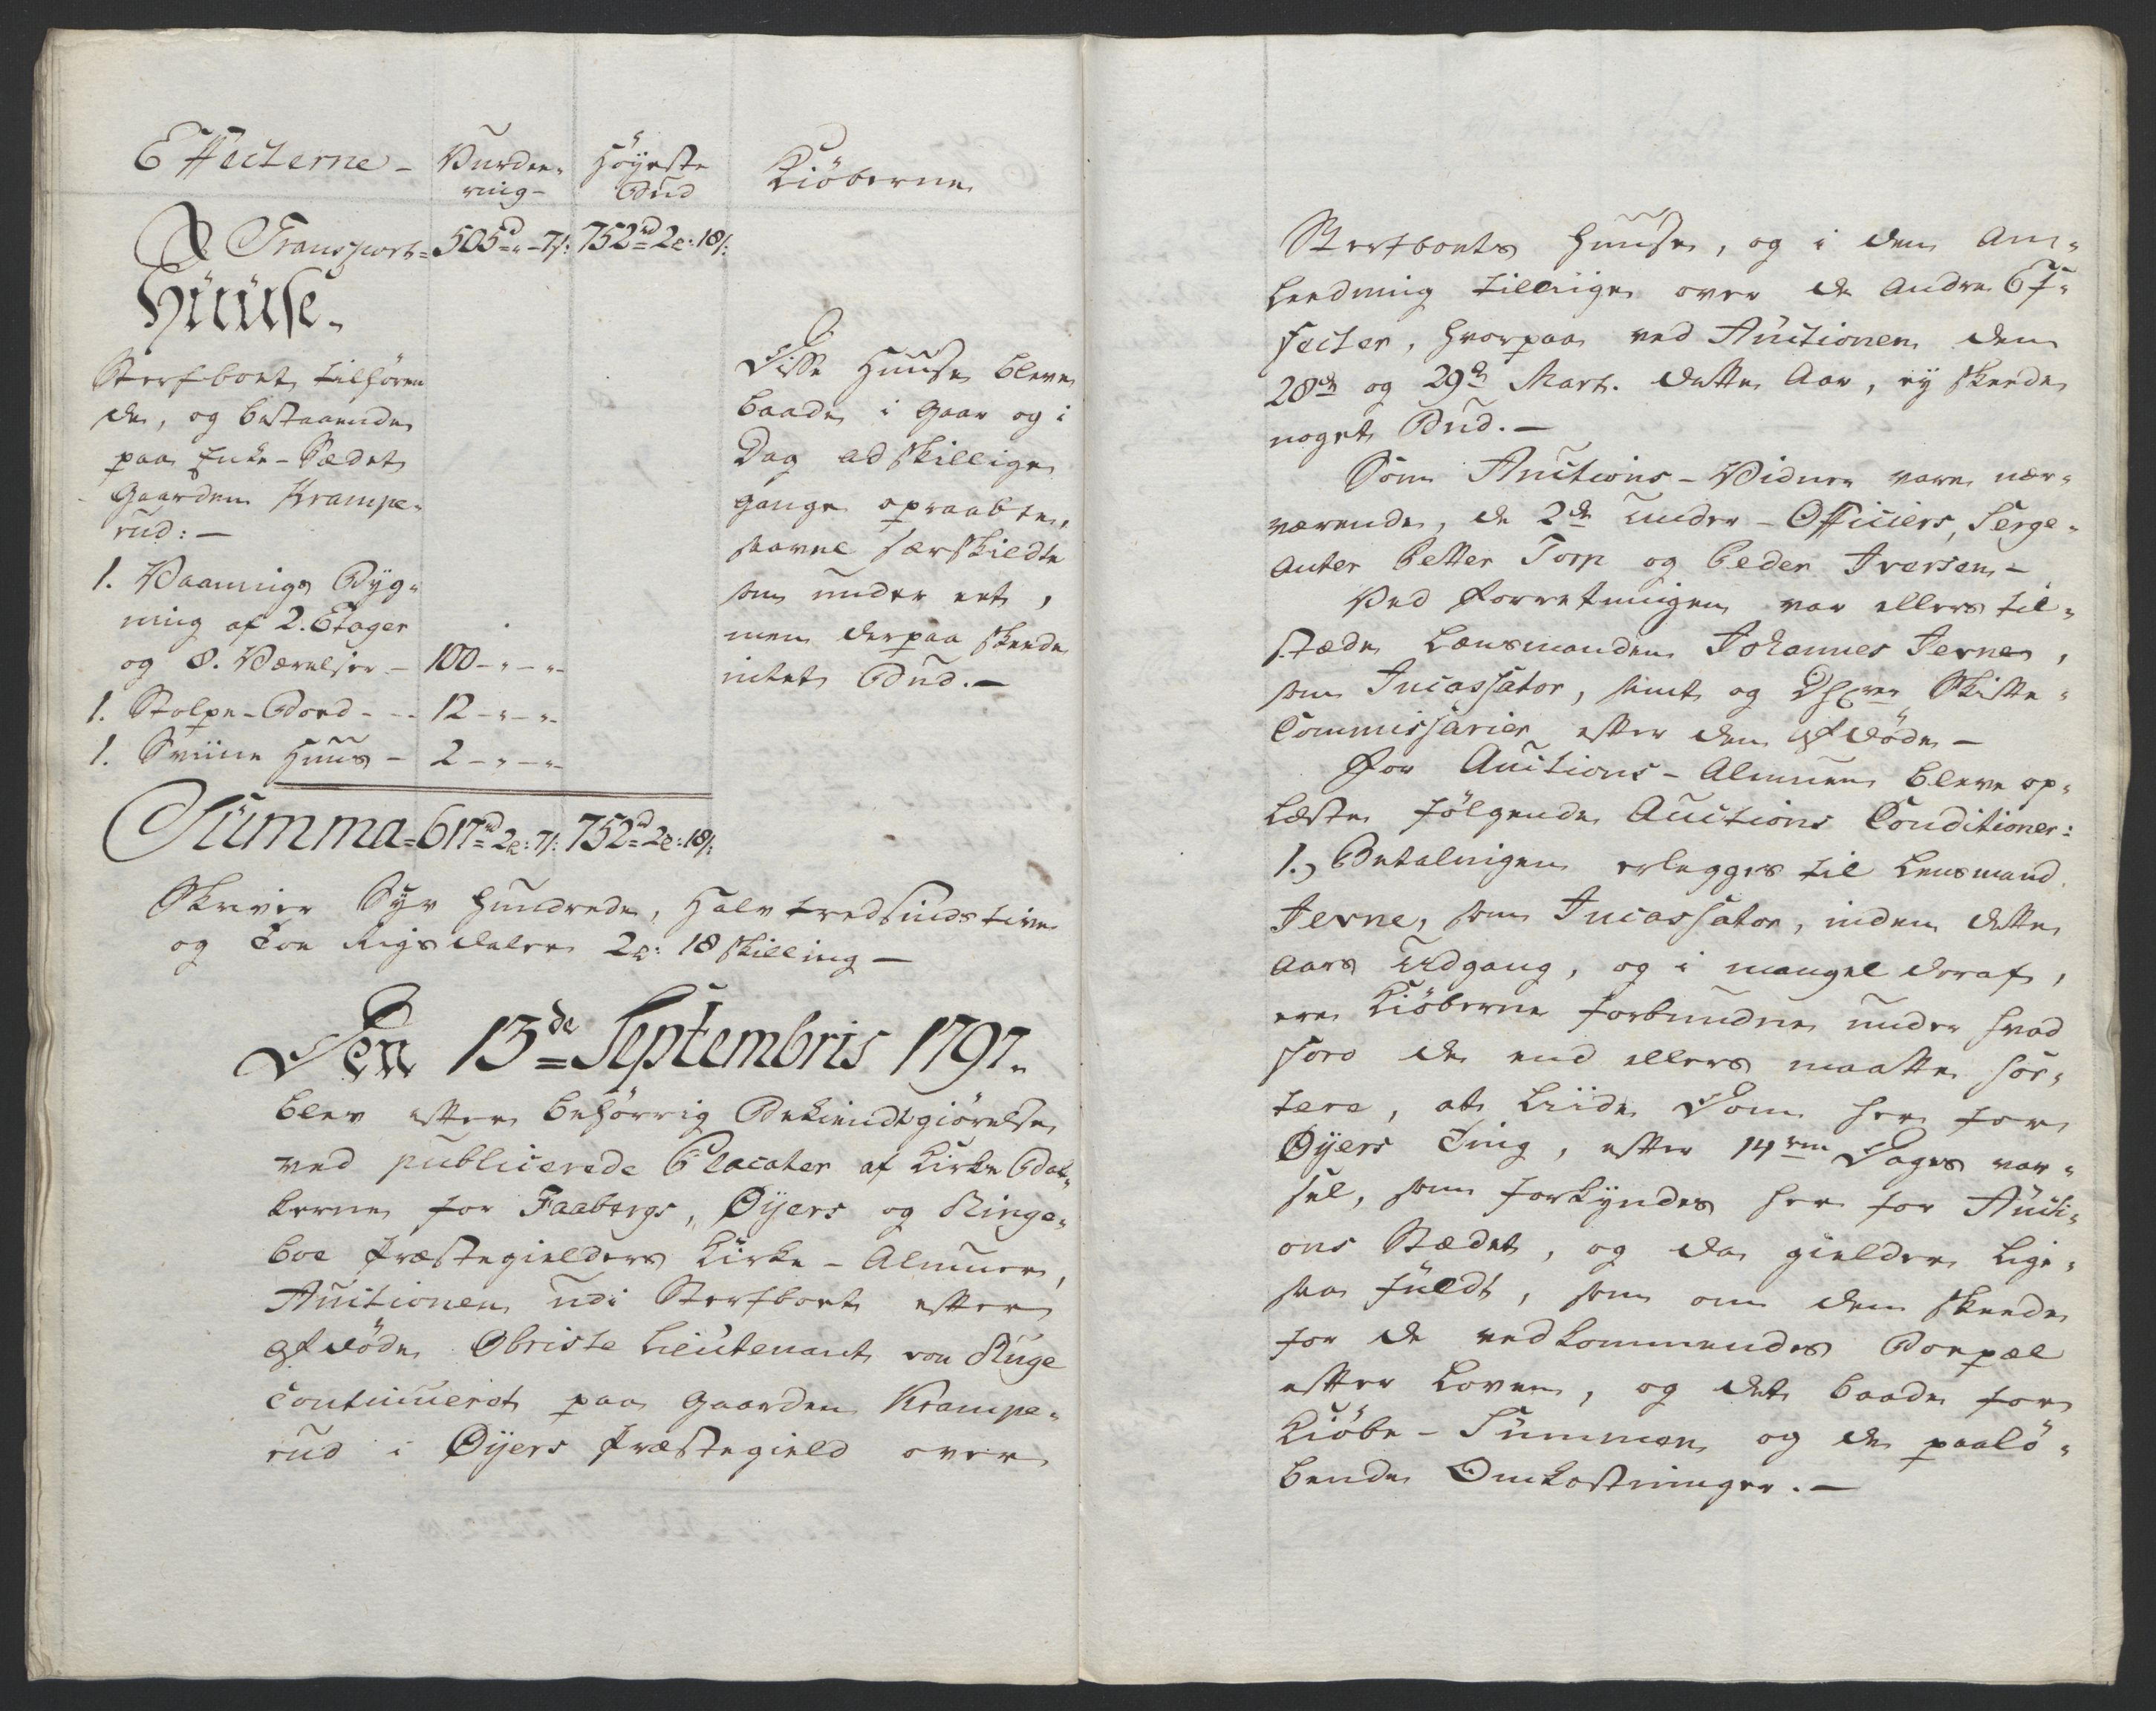 Effecterne -
Vurdee-
ring -
Höyeste
Bud
Kiöberne
Transport = 505rd " - 7s: 752rd 2o: 18s:
Huuse.
Sterfboet tilhören
de, og bestaaende
paa Enke-Sædet
Gaarden Krampe-
rud: -
1. Vaanings Byg-
ning af 2. Etager
og 8. Værelser - 100 - " - "
1. Stolpe-Boed - - 12 - " - "
1. Sviine Huus - 2 - " - "
Disse Huuse bleve
baade i Gaar og i
Dag adskillige
gange opraabte,
saavel særskildte
som under eet,
men derpaa skeede
intet Bud. -
Summa = 617rd 2o: 7s: 752rd 2o: 18s:
Skriver Syv hundrede, Halvtredsindstive
og Toe Rigsdaler 2o: 18 skilling -
Den 13de Septembris 1797.
blev efter behörrig Bekiendtgiörelse
ved publicerede Placater af Kirke Bak-
kerne for Faabergs, Øyers og Ringe-
boe Præstegielders Kirke-Almuer,
Auctionen udi Sterfboet efter
afdöde Obriste Lieutenant von Ruge
Continueret paa Gaarden Krampe-
rud i Øyers Præstegield over
Sterfboets Huuse, og i den An-
leedning tilliige over de andre Ef-
fecter, hvorpaa ved Auctionen den
28de og 29de Mart. dette Aar, ey skeede
noget Bud. -
Som Auctions-Vidner vare nær-
værende, de 2de Under-Officiers, Serge-
anter Petter Torp og Peder Iversen -
Ved Forretningen var ellers til-
stæde Lænsmanden Johannes Jevne,
som Incassator, samt og Skifte-
Commissarier efter den afdöde -
For Auctions-Almuen bleve op-
læste fölgende Auctions Conditioner:
1.) Betalningen erlegges til Lensmand
Jevne, som Incassator, inden dette
Aars Udgang, og i mangel deraf,
ere Kiöberne forbundne under hvad
foro de end ellers maatte sor-
tere, at liide Dom her for
Øyers Ting, efter 14ten Dages var-
sel, som forkyndes her for Aucti-
ons Stædet, og da gielder lige-
saa fuldt, som om den skeede
for de vedkommendes Boepæl
efter Loven, og det baade for
Kiöbe-Summen og de paalö-
bende Omkostninger. -